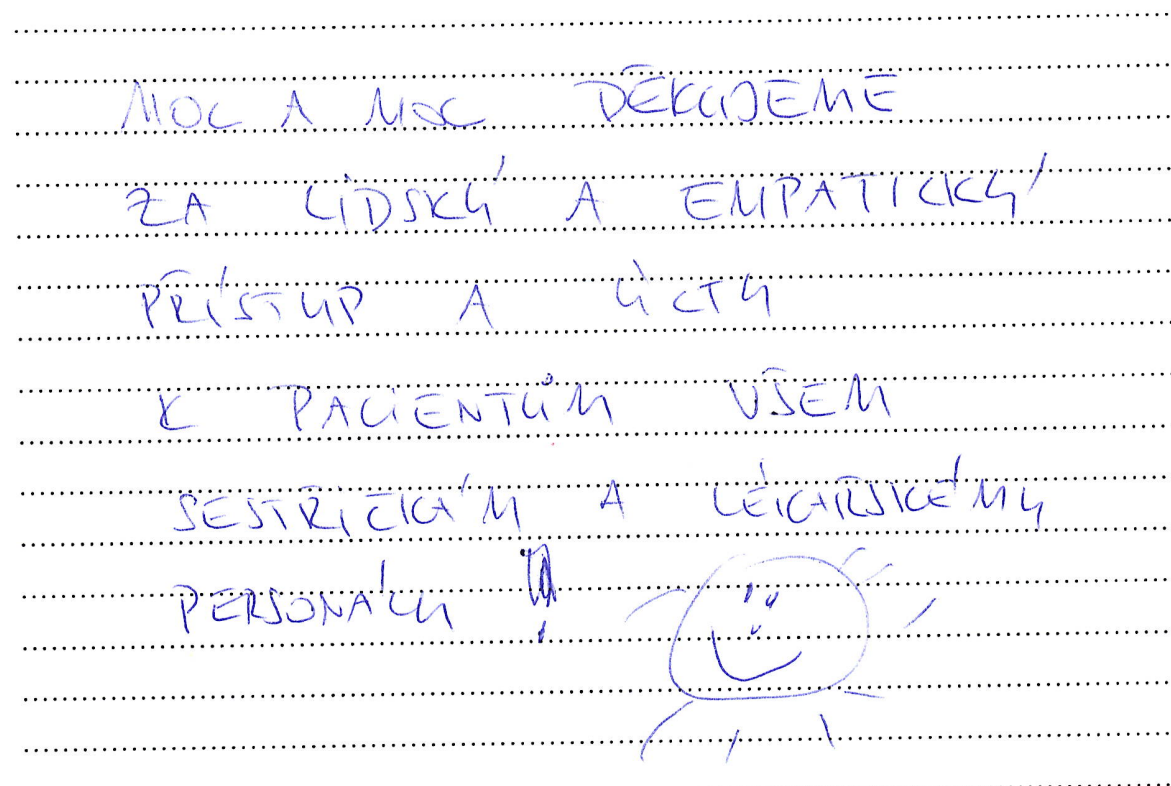 MOC A MOC DĚKUJEME
ZA LIDSKÝ A EMPATICKÝ
PŘÍSTUP A ÚCTU
K PACIENTŮM VŠEM
SESTŘIČKÁM A LÉKAŘSKÉMU
PERSONÁLU !